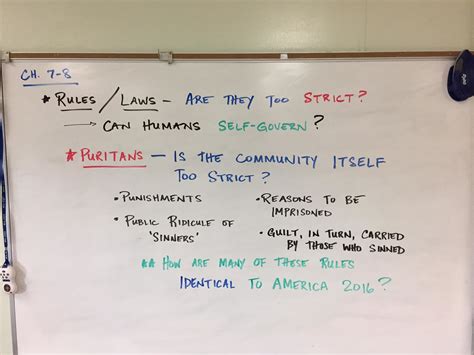 CH. 7-8
* RULES / LAWS - ARE THEY TOO STRICT?
→ CAN HUMANS SELF-GOVERN?
* PURITANS - IS THE COMMUNITY ITSELF
TOO STRICT?
• PUNISHMENTS
• PUBLIC RIDICULE OF
'SINNERS'
• REASONS TO BE
IMPRISONED
• GUILT, IN TURN, CARRIED
BY THOSE WHO SINNED
** HOW ARE MANY OF THESE RULES
IDENTICAL TO AMERICA 2016?